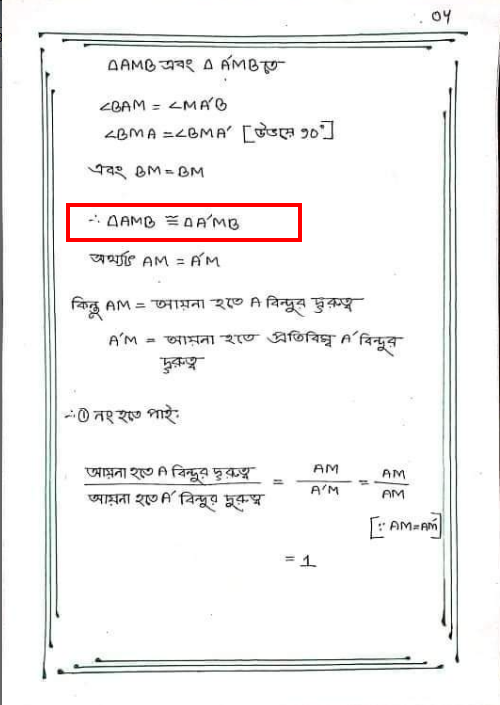 04
ΔAMB এবং Δ A′MB তে
∠BAM = ∠MA′B
∠BMA = ∠BMA′ [উভয়ে ৯0°]
এবং BM = BM
∴ ΔAMB ≅ ΔA′MB
অর্থ্যাৎ AM = A′M
কিন্তু AM = আয়না হতে A বিন্দুর দুরুত্ব
A′M = আয়না হতে প্রতিবিম্ব A′ বিন্দুর
দুরুত্ব
∴ ① নং হতে পাই:
আয়না হতে A বিন্দুর দুরুত্ব / আয়না হতে A′ বিন্দুর দুরুত্ব = AM / A′M = AM / AM
[∵ AM = AM′]
= 1